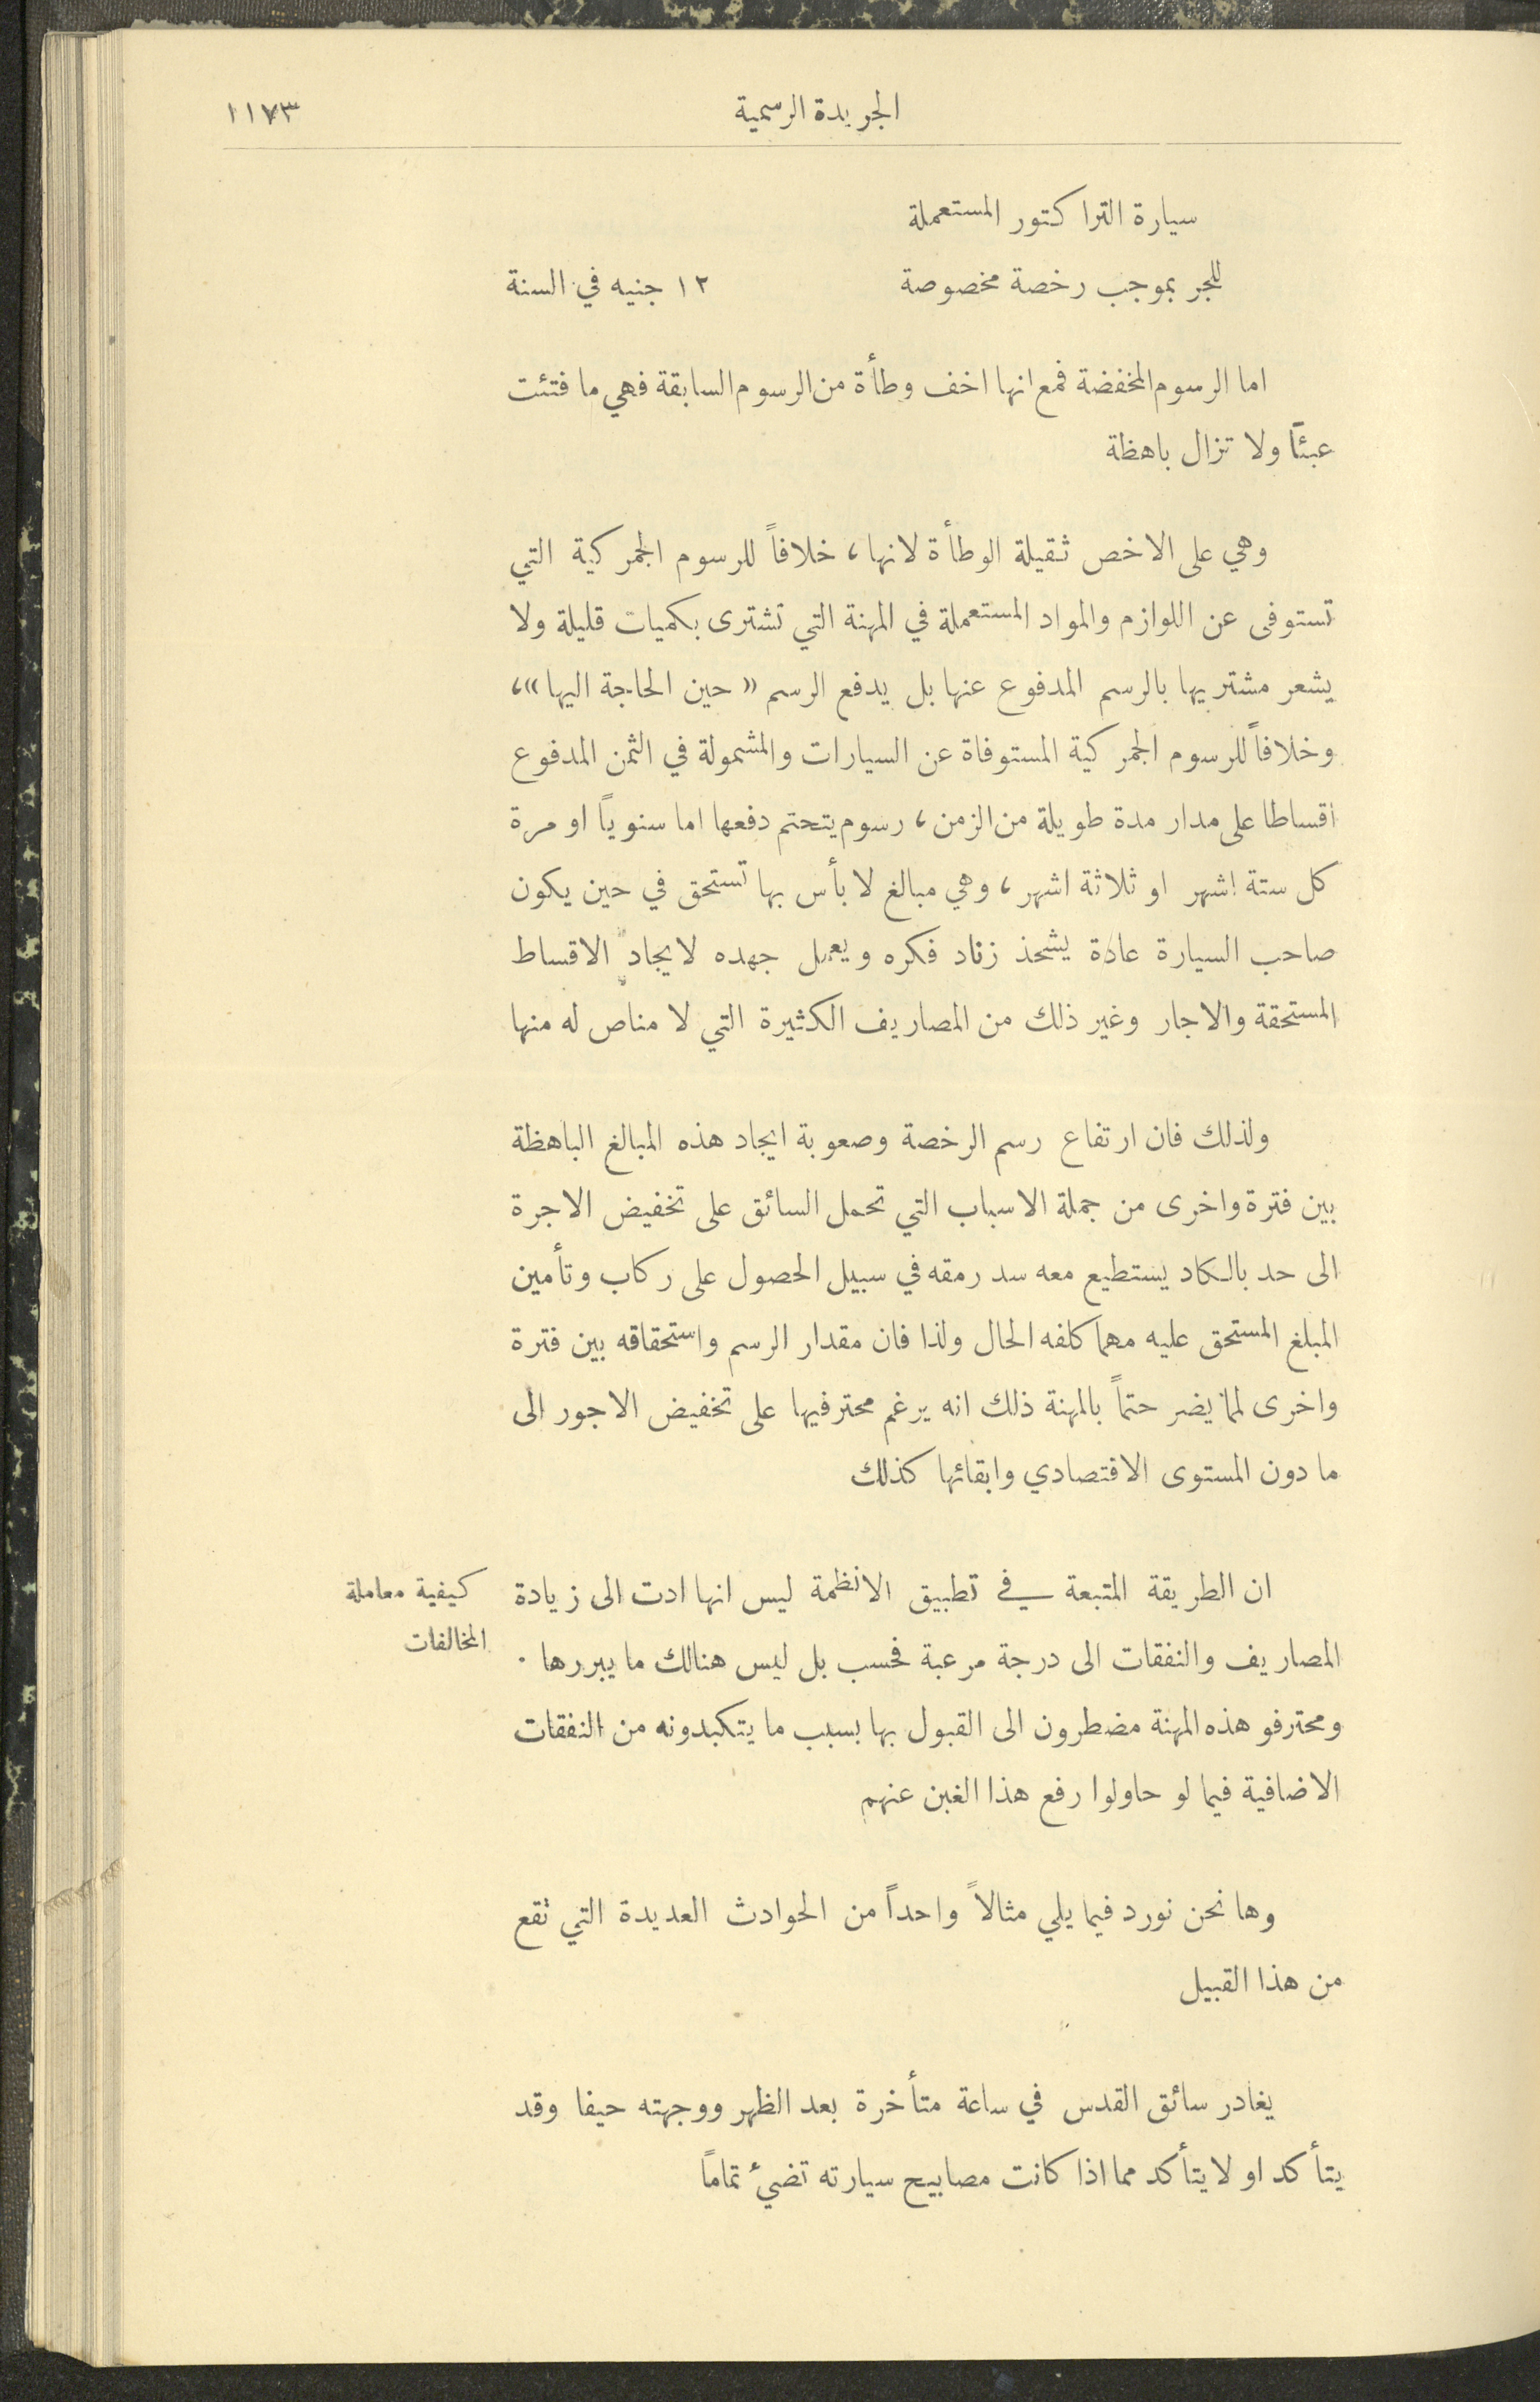 الجريدة الرسمية ١١٧٣
سيارة التراكتور المستعملة
للجر بموجب رخصة مخصوصة ١٢ جنيه في السنة
اما الرسوم المخفضة فمع انها اخف وطأة من الرسوم السابقة فهي ما فتئت
عبئًا ولا تزال باهظة
وهي على الاخص ثقيلة الوطأة لانها، خلافاً للرسوم الجمركية التي
تستوفى عن اللوازم والمواد المستعملة في المهنة التي تشترى بكميات قليلة ولا
يشعر مشتريها بالرسم المدفوع عنها بل يدفع الرسم «حين الحاجة اليها»،
وخلافاً للرسوم الجمركية المستوفاة عن السيارات والمشمولة في الثمن المدفوع
اقساطا على مدار مدة طويلة من الزمن، رسوم يتحتم دفعها اما سنوياً او مرة
كل ستة اشهر او ثلاثة اشهر، وهي مبالغ لا بأس بها تستحق في حين يكون
صاحب السيارة عادة يشحذ زناد فكره ويعمل جهده لايجاد الاقساط
المستحقة والاجار وغير ذلك من المصاريف الكثيرة التي لا مناص له منها
ولذلك فان ارتفاع رسم الرخصة وصعوبة ايجاد هذه المبالغ الباهظة
بين فترة واخرى من جملة الاسباب التي تحمل السائق على تخفيض الاجرة
الى حد بالكاد يستطيع معه سد رمقه في سبيل الحصول على ركاب وتأمين
المبلغ المستحق عليه مهما كلفه الحال ولذا فان مقدار الرسم واستحقاقه بين فترة
واخرى لمما يضر حتماً بالمهنة ذلك انه يرغم محترفيها على تخفيض الاجور الى
ما دون المستوى الاقتصادي وابقائها كذلك
ان الطريقة المتبعة في تطبيق الانظمة ليس انها ادت الى زيادة كيفية معاملة
المصاريف والنفقات الى درجة مرعبة فحسب بل ليس هنالك ما يبررها. المخالفات
ومحترفو هذه المهنة مضطرون الى القبول بها بسبب ما يتكبدونه من النفقات
الاضافية فيما لو حاولوا رفع هذا الغبن عنهم
وها نحن نورد فيما يلي مثالاً واحداً من الحوادث العديدة التي تقع
من هذا القبيل
يغادر سائق القدس في ساعة متأخرة بعد الظهر ووجهته حيفا وقد
يتأكد او لا يتأكد مما اذا كانت مصابيح سيارته تضيء تماماً